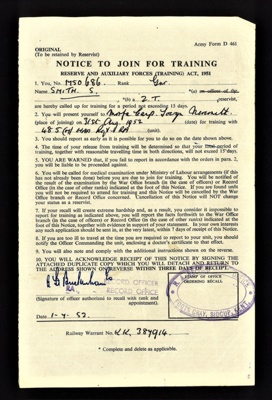 Army Form D 461
ORIGINAL
(To be retained by Reservist)
NOTICE TO JOIN FOR TRAINING
RESERVE AND AUXILIARY FORCES (TRAINING) ACT, 1951
1. You, No. Rank Gnr.
SMITH. S. *(a)
*(b) a Z.T. reservist,
are hereby called up for training for a period not exceeding 15 days.
2. You will present yourself at
(place of joining) on 31st Aug 1952 (date) for training with
3. You should report as early as it is possible for you to do so on the date shown above.
4. The time of your release from training will be determined so that your total period of
training, together with reasonable travelling time in both directions, will not exceed 15 days.
5. YOU ARE WARNED that, if you fail to report in accordance with the orders in para. 2,
you will be liable to be proceeded against.
6. You will be called for medical examination under Ministry of Labour arrangements (if this
has not already been done) before you are due to join for training. You will be notified of
the result of the examination by the War Office (in the case of officers) or the
Office (in the case of other ranks) indicated at the foot of this Notice. If you are found unfit
you will not be required to attend for training and this Notice will be cancelled by the War
Office branch or Record Office concerned. Cancellation of this Notice will NOT
change your status as a reservist.
7. If your recall will create extreme hardship and, as a result, you consider it impossible to
report for training as indicated above, you will report the facts forthwith to the War Office
branch (in the case of officers) or Record Office (in the case of other ranks) indicated at the
foot of this Notice, together with evidence in support of your statement. In your own interests
any such application should be sent in, at the very latest, within 7 days of receipt of this Notice.
8. If you are too ill to travel at the time you are required to report to your unit, you should
notify the Officer Commanding the unit, enclosing a doctor's certificate to that effect.
9. You will also note and comply with the additional instructions shown on the reverse.
10. YOU WILL ACKNOWLEDGE RECEIPT OF THIS NOTICE BY SIGNING THE
ATTACHED DUPLICATE COPY WHICH YOU WILL DETACH AND RETURN TO
THE ADDRESS SHOWN OVERLEAF WITHIN THREE DAYS OF RECEIPT.
RECORD OFFICER
RECORD OFFICE
(Signature of officer authorised to recall with rank and
appointment)
STAMP OF OFFICE
ORDERING RECALL
SIDCUP, KENT
Date 1.7.52.
Railway Warrant No. KK. 387914.
* Complete and delete as applicable.